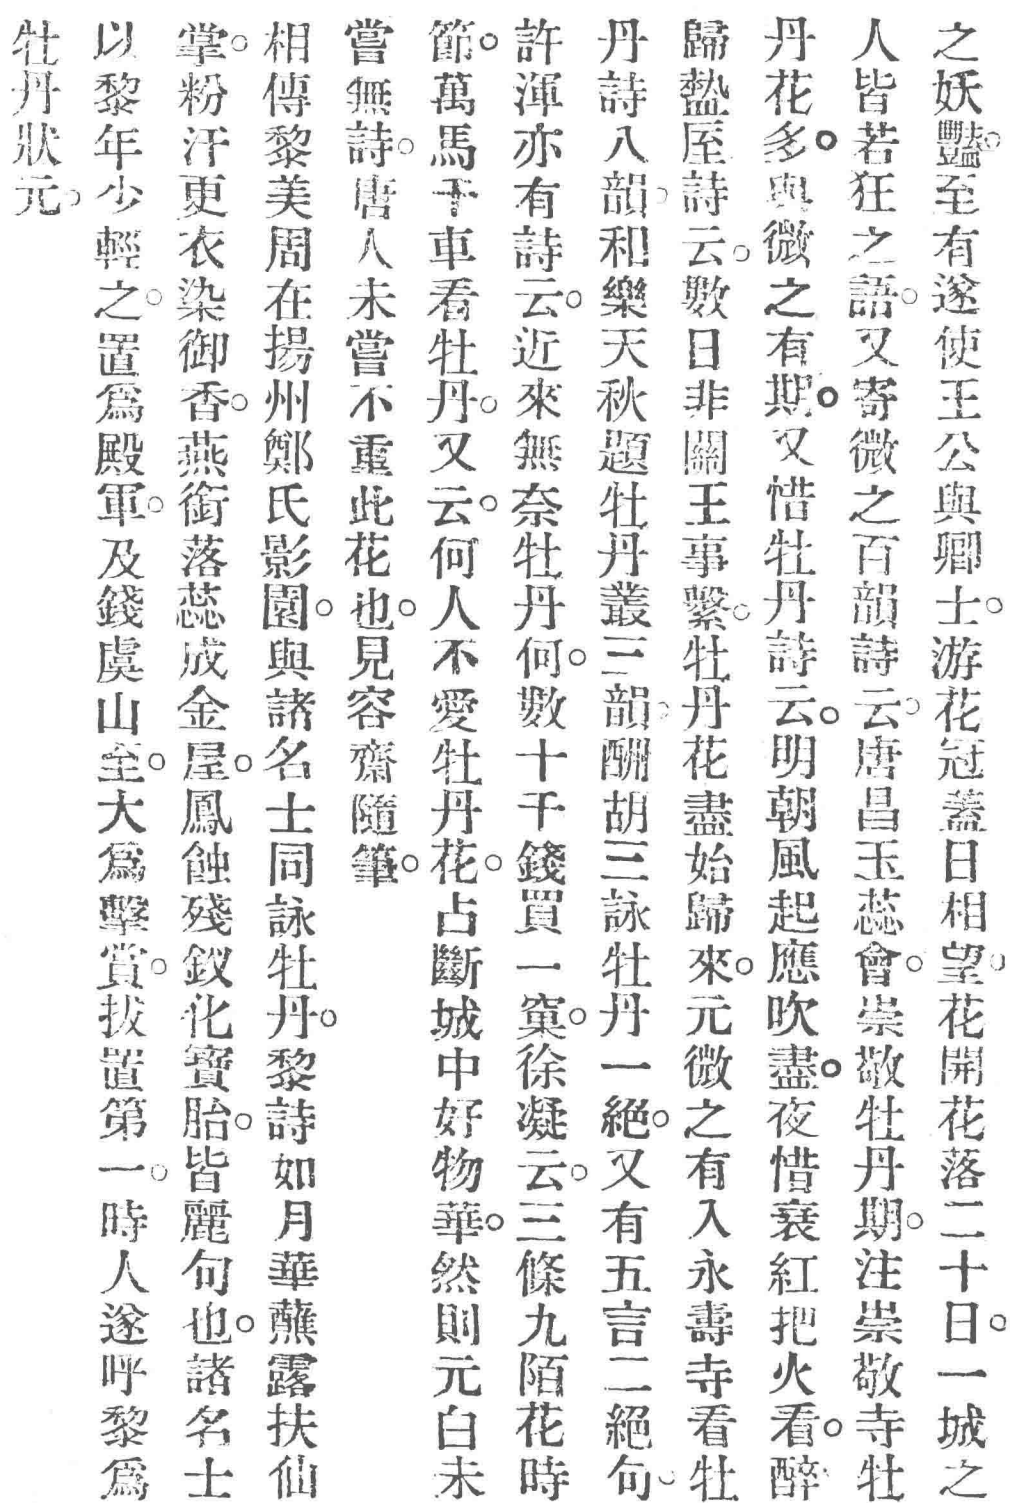 之妖豔。至有遂使王公與卿士。游花冠蓋日相望。花開花落二十日。一城之
人皆若狂之語。又寄微之百韻詩云。唐昌玉蕊會。崇敬牡丹期。注崇敬寺牡
丹花多。與微之有期。又惜牡丹詩云。明朝風起應吹盡。夜惜衰紅把火看。醉
歸盩厔詩云。數日非關王事繫。牡丹花盡始歸來。元微之有入永壽寺看牡
丹詩八韻。和樂天秋題牡丹叢三韻。酬胡三詠牡丹一絕。又有五言二絕句。
許渾亦有詩云。近來無奈牡丹何。數十千錢買一窠。徐凝云。三條九陌花時
節。萬馬千車看牡丹。又云。何人不愛牡丹花。占斷城中好物華。然則元白未
嘗無詩。唐人未嘗不重此花也。見容齋隨筆。
相傳黎美周在揚州鄭氏影園。與諸名士同詠牡丹。黎詩如月華蘸露扶仙
掌。粉汗更衣染御香。燕銜落蕊成金屋。鳳蝕殘釵化寶胎。皆麗句也。諸名士
以黎年少輕之。置爲殿軍。及錢虞山至。大爲擊賞。拔置第一。時人遂呼黎爲
牡丹狀元。